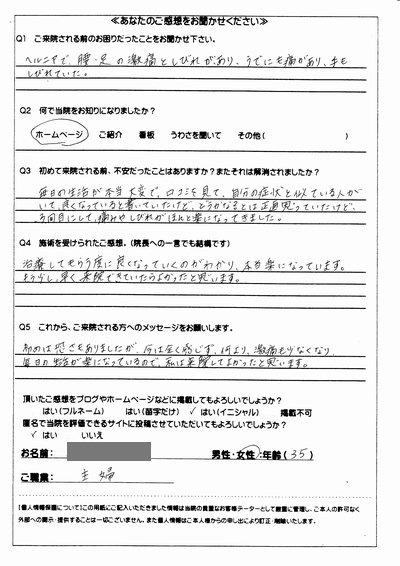 ≪あなたのご感想をお聞かせください≫
Q1 ご来院される前のお困りだったことをお聞かせ下さい。
ヘルニアで、腰・足の激痛としびれがあり、うでにも痛みがあり、手も
しびれていた。
Q2 何で当院をお知りになりましたか?
ホームページ ご紹介 看板 うわさを聞いて その他( )
Q3 初めて来院される前、不安だったことはありますか?またそれは解消されましたか?
毎日の生活が本当大変で、口コミを見て、自分の症状と似ている人が
いて、良くなっていると書いていたけど、どうかなぁとは正直思っていたけど、
3回目にして、痛みやしびれがほんと楽になってきました。
Q4 施術を受けられたご感想。(院長への一言でも結構です)
治療してもらう度に良くなっていくのがわかり、本当楽になっています。
もう少し、早く来院できていたらよかったと思います。
Q5 これから、ご来院される方へのメッセージをお願いします。
初めは恐さもありましたが、今は全く感じず、何より、激痛も少なくなり、
毎日の生活が楽になっているので、私は来院してよかったと思います。
頂いたご感想をブログやホームページなどに掲載してもよろしいでしょうか?
はい(フルネーム) はい(苗字だけ) ✓はい(イニシャル) 掲載不可
匿名で当院を評価できるサイトに投稿させていただいてもよろしいでしょうか?
✓はい いいえ
お名前: 男性・女性 :年齢(35)
ご職業: 主婦
【個人情報保護について】この用紙にご記入いただきました情報は当院の貴重なお客様データーとして厳重に管理し、ご本人の許可なく
外部への開示・提供することは一切ございません。また個人情報はご本人様からの申し出により訂正・削除いたします。